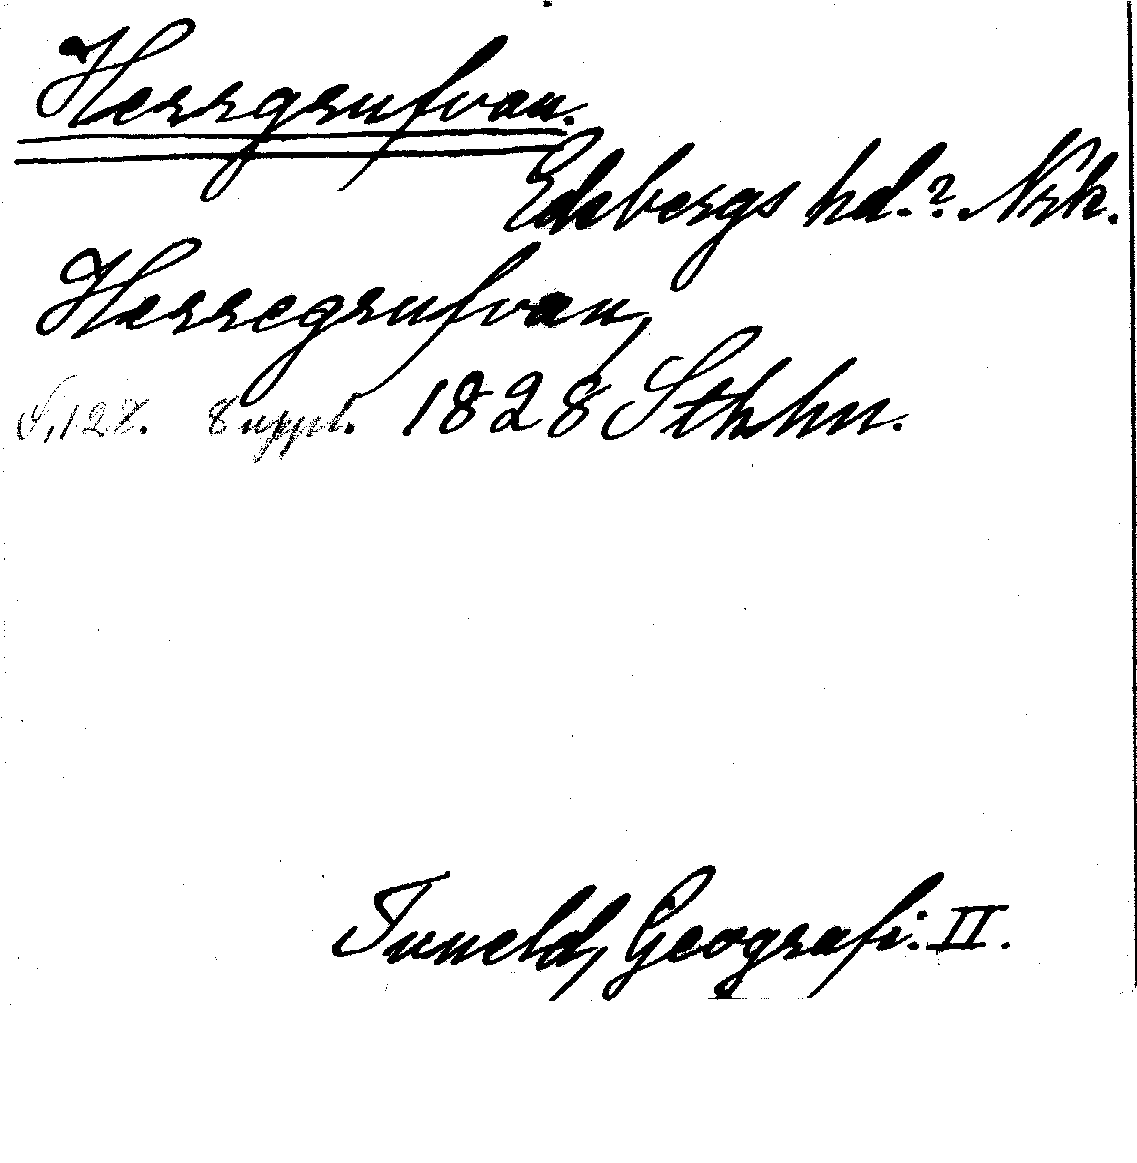 Herrgrufvan.
Edsbergs hd.?. Nrk.
Herregrufvan,
S. 127. 8 uppl. 1828 Sthhn.
Tuneld, Geografi. II.